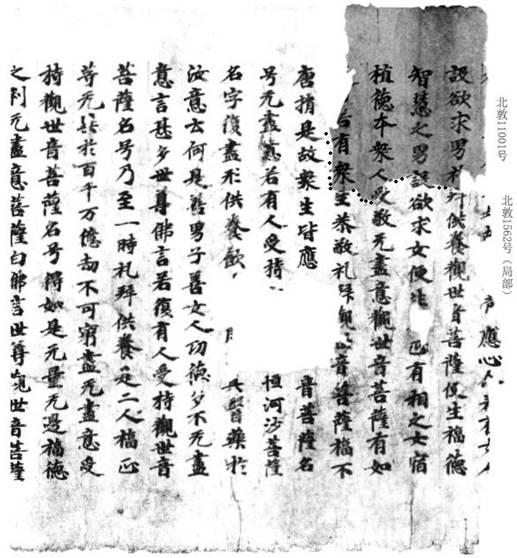 北敦11001号
北敦1562号（局部）
應心
設欲求男礼拜供養觀世音菩薩便生福德
智慧之男設欲求女便生正有相之女宿
植德本衆人愛敬无盡意觀世音菩薩有如
有衆生恭敬礼拜觀世音菩薩福不
唐捐是故衆生皆應音菩薩名
号无盡意若有人受持恒河沙菩薩
名字復盡形供養飲具醫藥於
汝意云何是善男子善女人功德多不无盡
意言甚多世尊佛言若復有人受持觀世音
菩薩名号乃至一時礼拜供養是二人福正
等无異於百千万億劫不可窮盡无盡意受
持觀世音菩薩名号得如是无量无邊福德
之利无盡意菩薩白佛言世尊觀世音菩薩